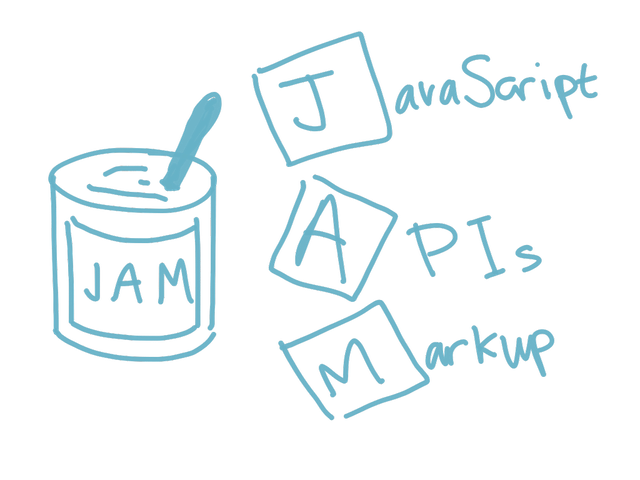 JAM
JavaScript
APIs
Markup